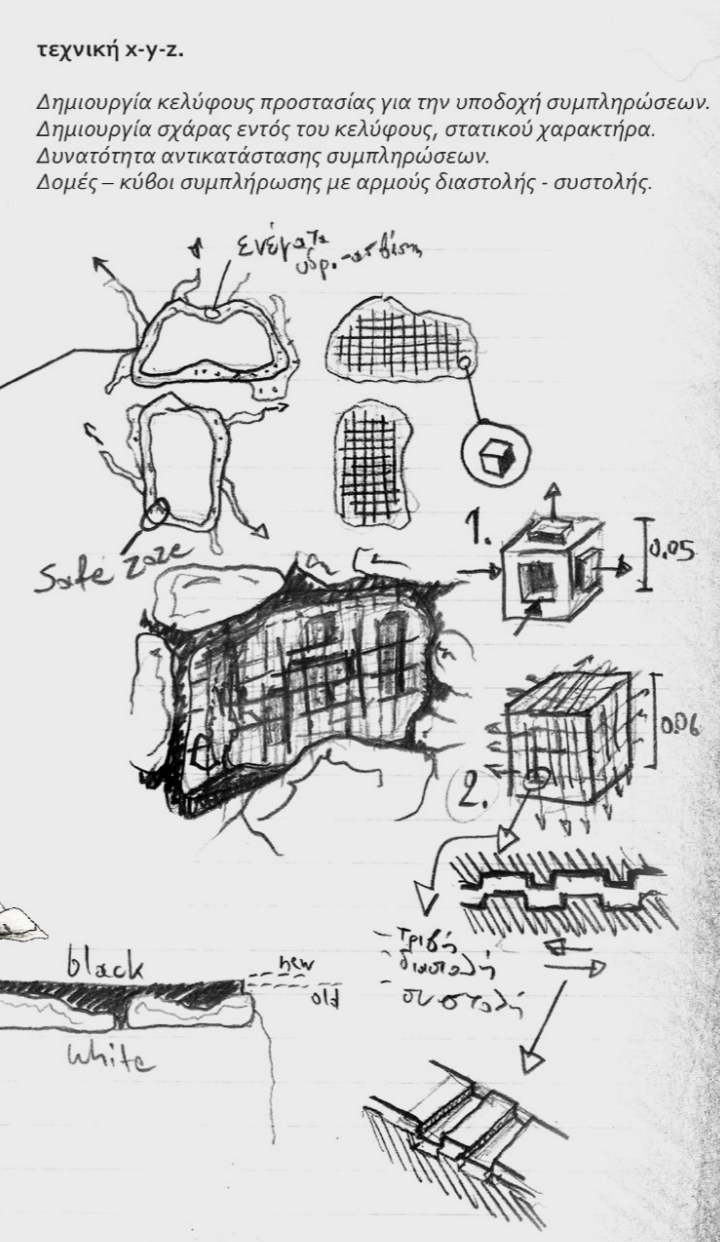 τεχνική x-y-z.
Δημιουργία κελύφους προστασίας για την υποδοχή συμπληρώσεων.
Δημιουργία σχάρας εντός του κελύφους, στατικού χαρακτήρα.
Δυνατότητα αντικατάστασης συμπληρώσεων.
Δομές – κύβοι συμπλήρωσης με αρμούς διαστολής - συστολής.
υδρ.
1.
0.05
Safe zoze
0.06
2.
black
new
old
white
– τριβή
– διαστολή
– συστολή